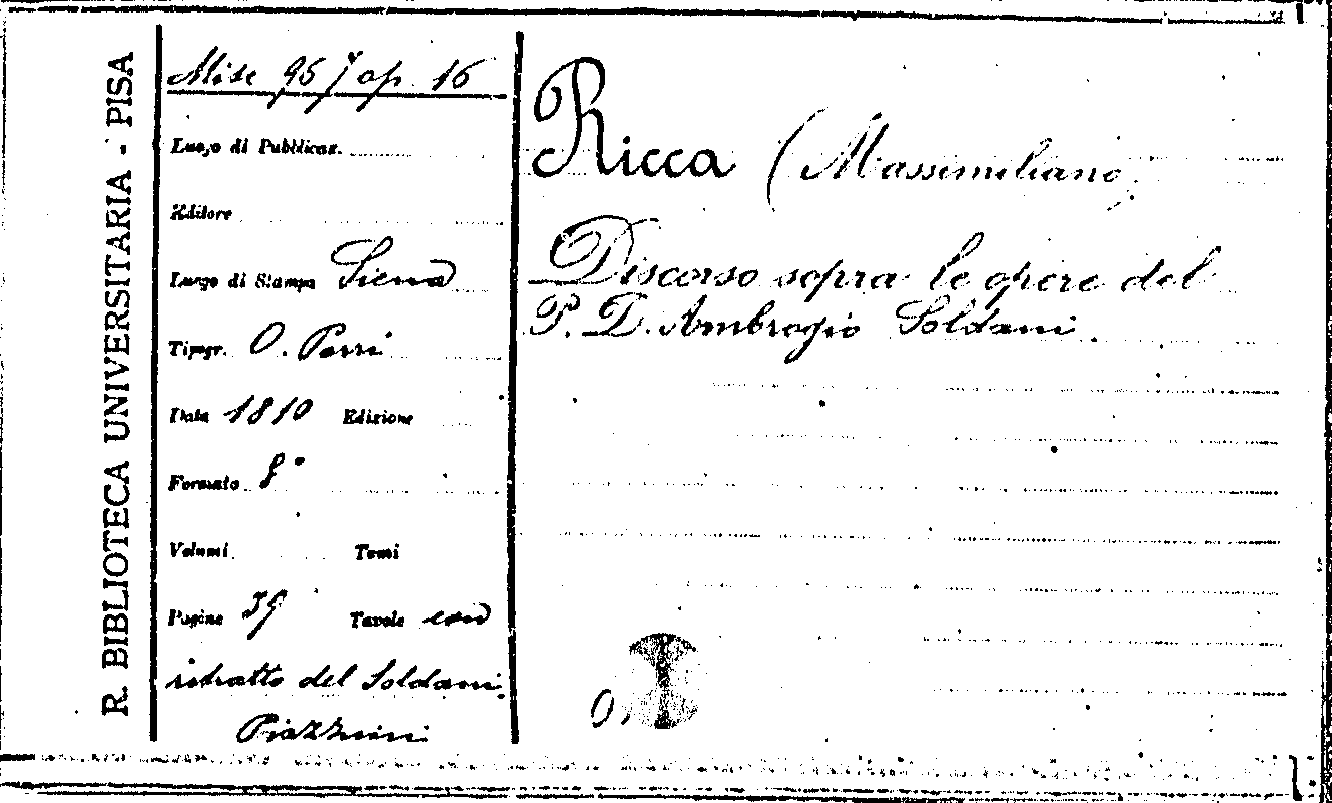 R. BIBLIOTECA UNIVERSITARIA - PISA
Misc 957 op. 16
Luogo di Pubblicaz.
Editore
Luogo di Stampa Siena
Tipogr. O. Porri
Data 1810 Edizione
Formato 8°
Volumi Tomi
Pagine 39 Tavole con
ritratto del Soldani.
Piazzini
Ricca (Massimiliano)
Discorso sopra le opere del
P. D. Ambrogio Soldani.